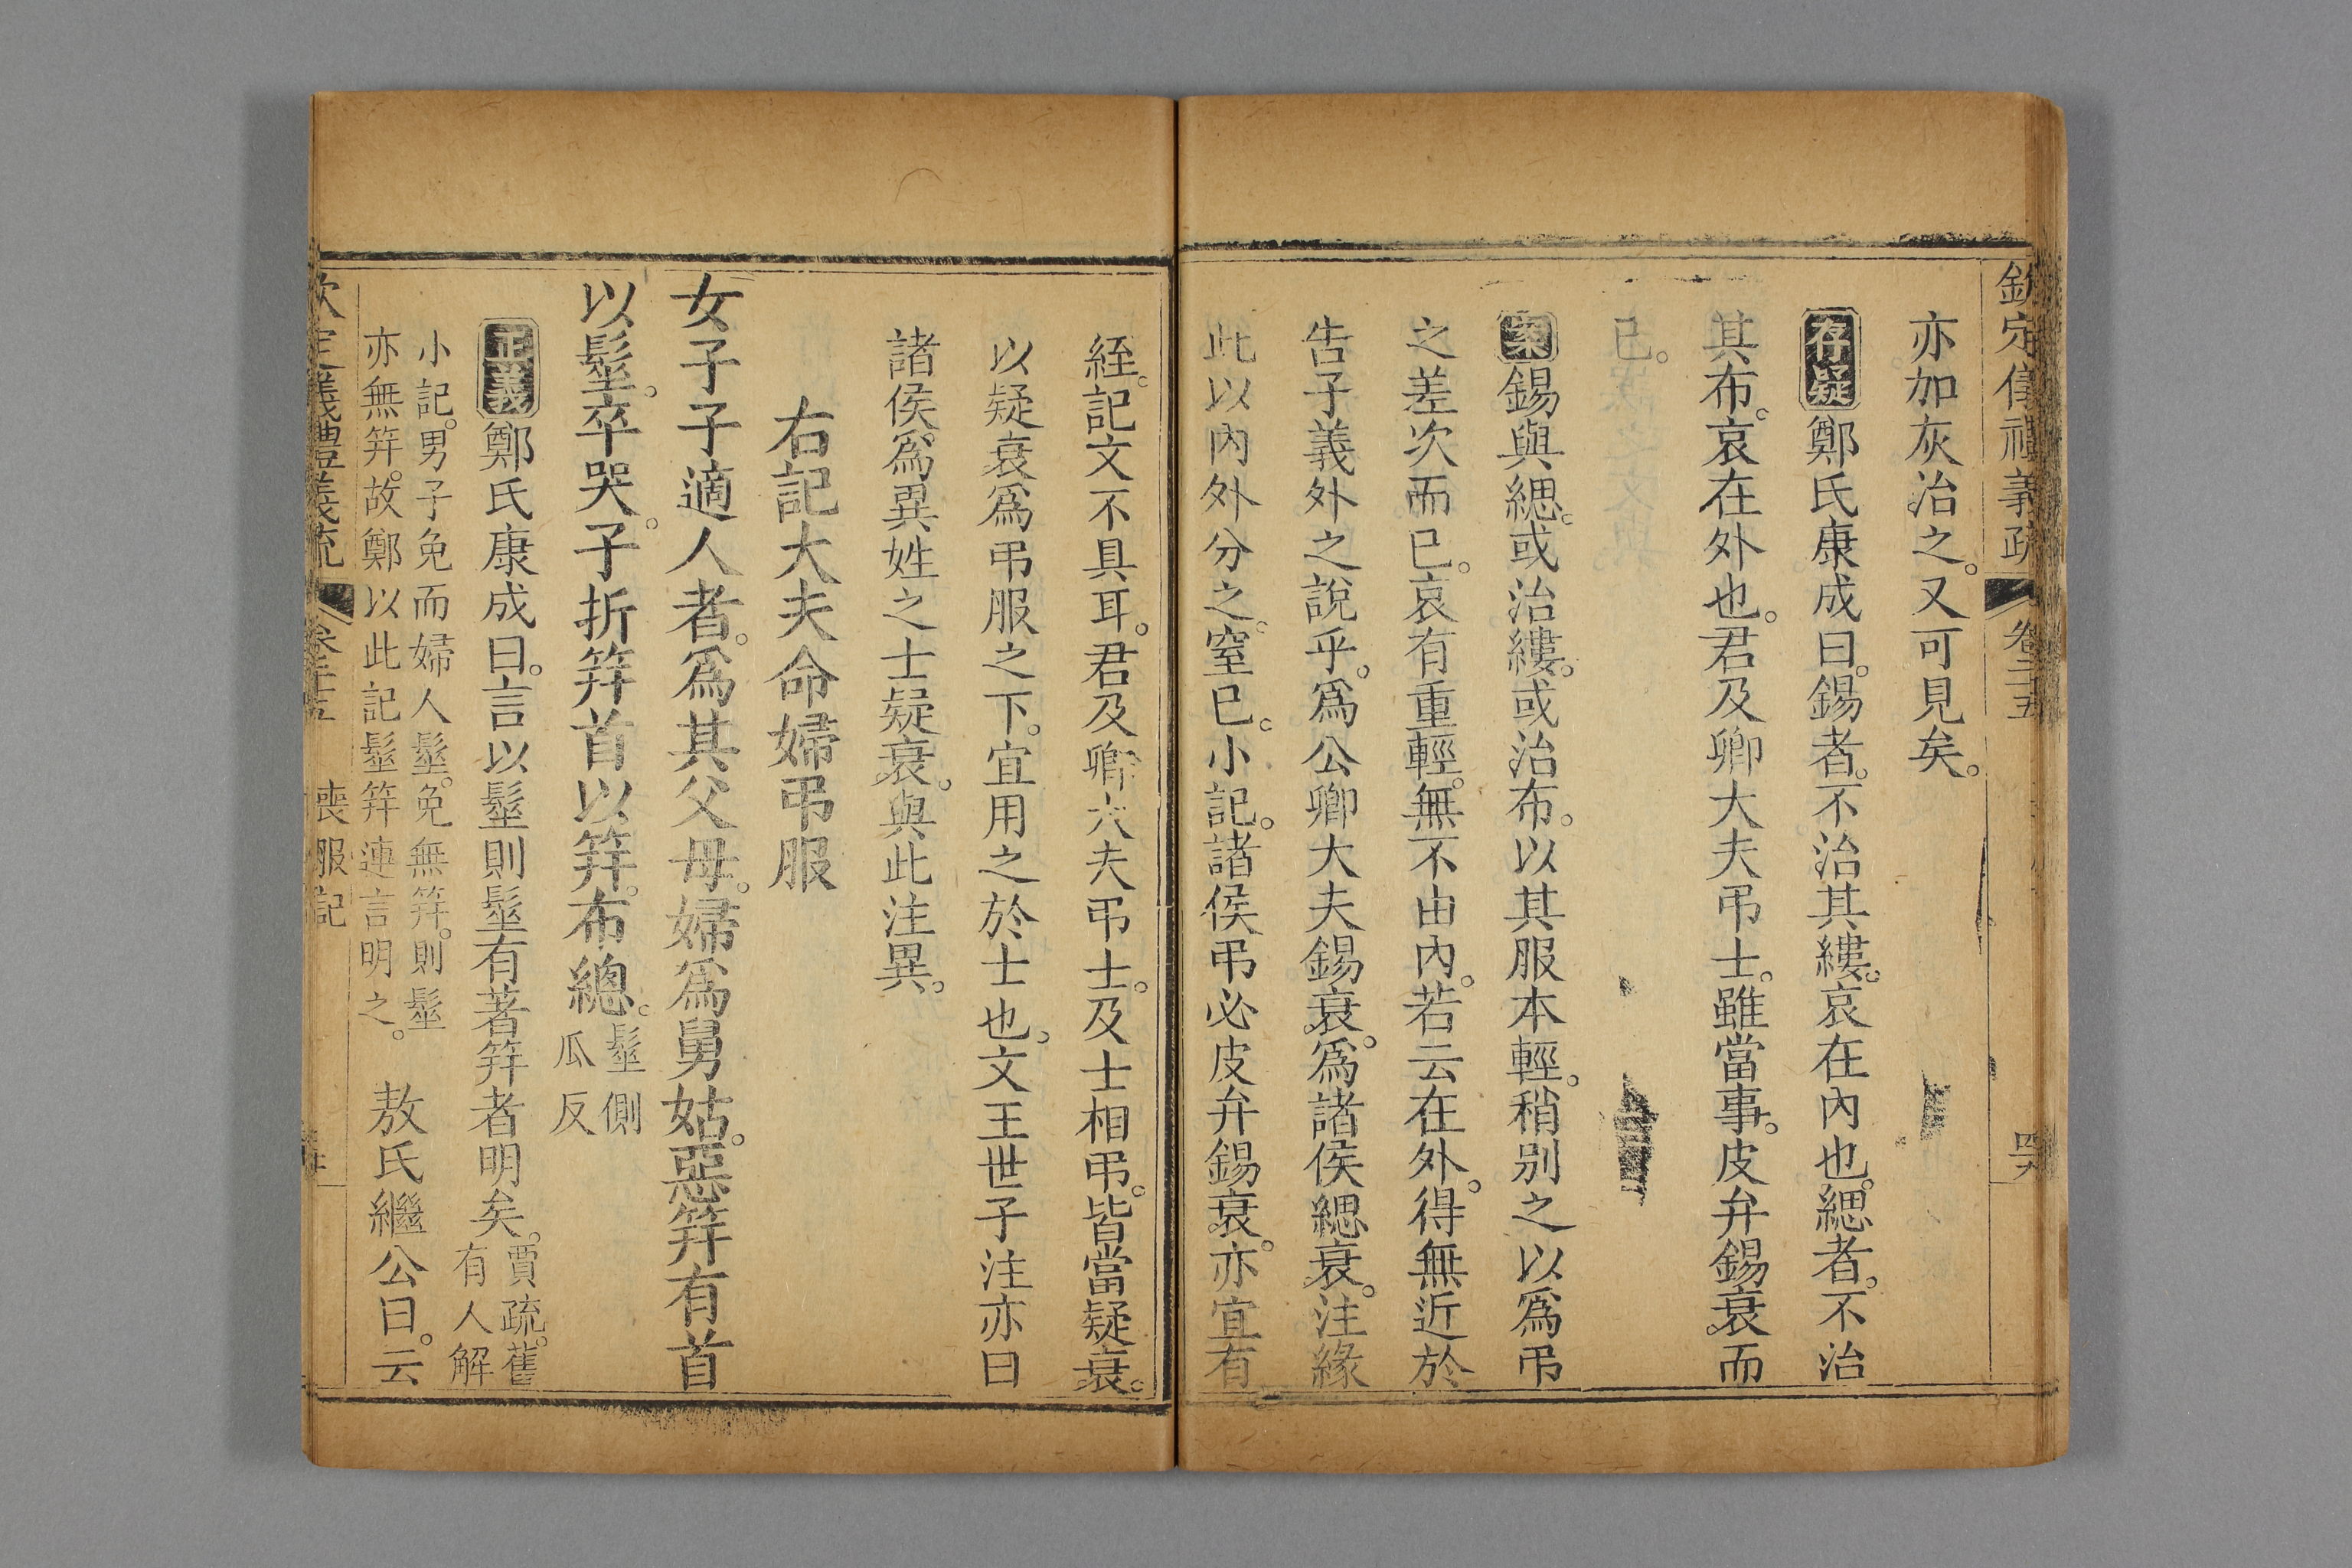 欽定儀禮義疏 卷二十五
亦加灰治之。又可見矣。
存疑鄭氏康成曰。錫者。不治其縷。哀在內也。緦者。不治
其布。哀在外也。君及卿大夫弔士。雖當事。皮弁錫衰而
已。
案錫與緦。或治縷。或治布。以其服本輕。稍别之以爲弔
之差次而已。哀有重輕。無不由內。若云在外。得無近於
告子義外之說乎。爲公卿大夫錫衰。爲諸侯緦衰。注緣
此以內外分之。窒已。小記。諸侯弔必皮弁錫衰。亦宜有
絰。記文不具耳。君及卿大夫弔士。及士相弔。皆當疑衰。
以疑衰爲弔服之下。宜用之於士也。文王世子注亦曰
諸侯爲異姓之士疑衰。與此注異。
右記大夫命婦弔服
女子子適人者。爲其父母。婦爲舅姑。惡笄有首
以髽。卒哭。子折笄首以笄。布總。髽側
瓜反
正義鄭氏康成曰。言以髽則髽有著笄者明矣。賈疏。舊
有人解
小記。男子免而婦人髽。免無笄。則髽
亦無笄。故鄭以此記髽笄連言明之。敖氏繼公曰。云
欽定儀禮義疏 卷二十五 喪服記